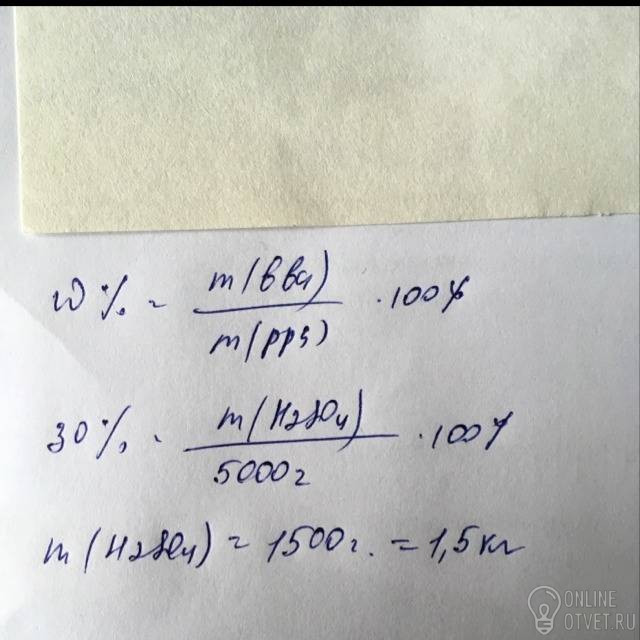 ω% = m(вва) / m(рра) · 100%
30% = m(H2SO4) / 5000г · 100%
m(H2SO4) = 1500г. = 1,5кг
ONLINE
OTVET.RU